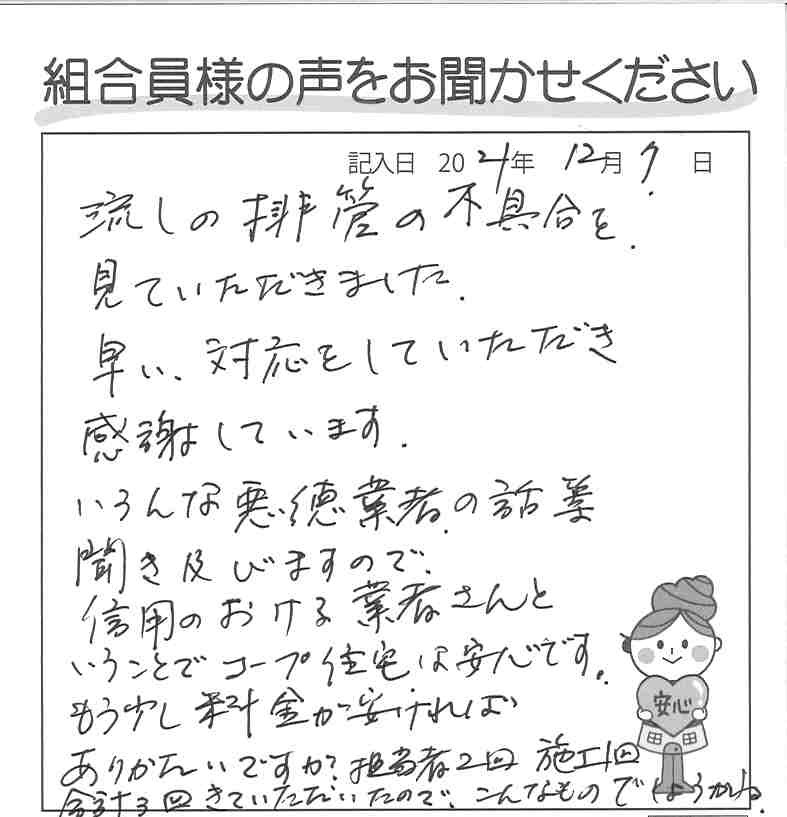 組合員様の声をお聞かせください
記入日 2021年 12月 9日
流しの排管の不具合を.
見ていただきました.
早い、対応をしていただき
感謝しています.
いろんな悪徳業者の話等
聞き及びますので、
信用のおける業者さんと
いうことでコープ住宅は安心です。
もう少し料金が安ければ
ありがたいですが?担当者2回 施工1回
合計3回きていただいたので、こんなものでしょうかね.
安心